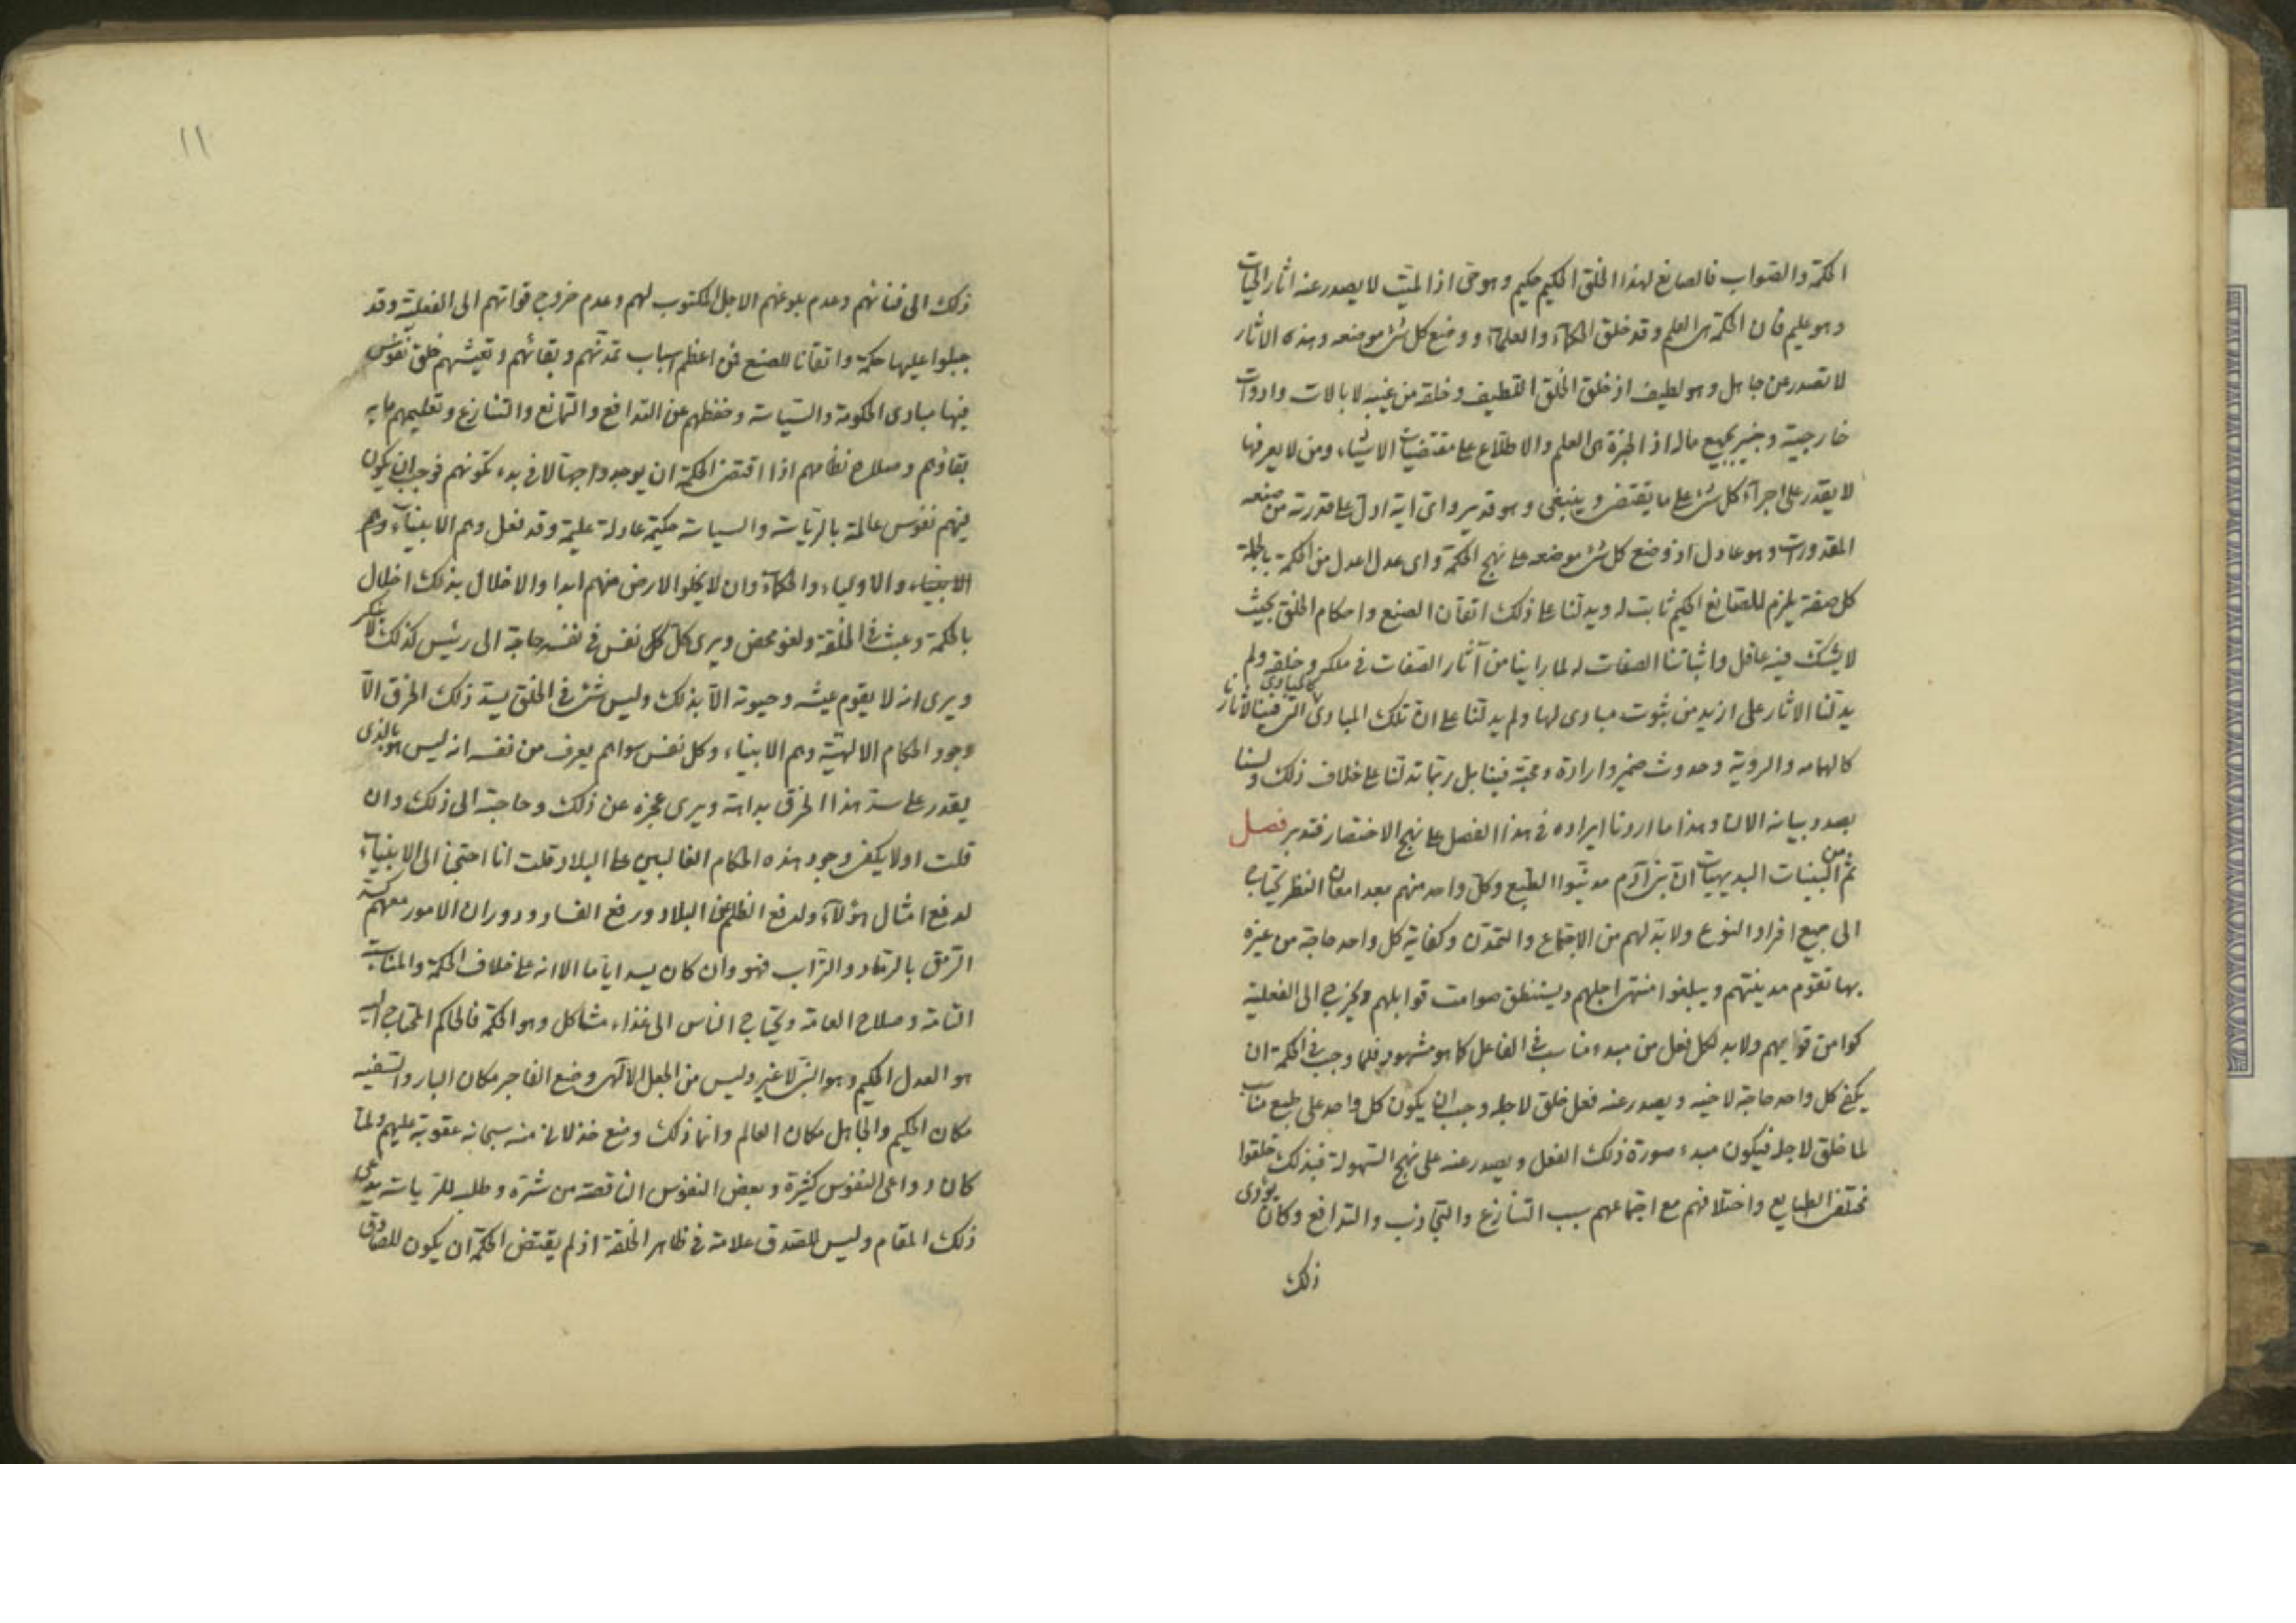 الحكمة والصواب فالصانع لهذا الخلق الحكيم حكيم وهو حى اذ الميت لا يصدر عنه اثار الحيات
وهو عليم فان الحكمة هى العلم وقد خلق الحكماء والعلماء ووضع كل شئ موضعه وهذه الاثار
لا تصدر عن جاهل وهو لطيف اذ خلق الخلق اللطيف وخلقه من غيبه لا بالات وادوات
خارجية وخبير بجميع ماله اذ الخبرة هى العلم والاطلاع على مقتضيات الاشياء ومن لا يعرفها
لا يقدر على اجراء كل شئ على ما يقتضى وينبغى وهو قدير واى اية ادل على قدرته من صنعه
المقدورات وهو عادل اذ وضع كل شئ موضعه على نهج الحكمة واى عدل اعدل من الحكمة بالجملة
كل صفة يلزم للصانع الحكيم ثابت له ويدلنا على ذلك اتقان الصنع واحكام الخلق بحيث
لا يشك فيه عاقل واثباتنا الصفات له لما راينا من آثار الصفات فى ملكه وخلقه ولم
يدلنا الاثار على ازيد من ثبوت مبادى لها ولم يدلنا على ان تلك المبادى كالمبادى التى فينا لاثارنا
كالهامه والروية وحدوث ضمير وارادة ومحبة فينا بل ربما تدلنا على خلاف ذلك ولسنا
بصدد بيانه الان وهذا ما اردنا ايراده فى هذا الفصل على نهج الاختصار فتدبر فصل
ثم من البينات البديهيات ان بنى آدم مدنيوا الطبع وكل واحد منهم بعد امعان النظر يحتاج
الى جميع افراد النوع ولا بد لهم من الاجتماع والتمدن وكفاية كل واحد حاجة من غيره
بها تقوم مدينتهم ويبلغوا منتهى اجلهم ويستنطق صوامت قوابلهم ويخرج الى الفعلية
كوامن قوابهم ولا بد لكل فعل من مبدء مناسب فى الفاعل كما هو مشهود فلما وجب فى الحكمة ان
يكفى كل واحد حاجة لاخيه ويصدر عنه فعل خلق لاجله وجب ان يكون كل واحد على طبع مناسب
لما خلق لاجله فيكون مبدء صورة ذلك الفعل ويصدر عنه على نهج السهولة فبذلك خلقوا
مختلفى الطبايع واختلافهم مع اجتماعهم سبب التنازع والتجاذب والتدافع وكان يؤدى
ذلك
١١
ذلك الى فنائهم وعدم بلوغهم الاجل المكتوب لهم وعدم خروج قواتهم الى الفعلية وقد
جبلوا عليها حكمة واتقانا للصنع فمن اعظم اسباب تمدنهم وبقائهم وتعيشهم خلق نفوس
فيها مبادى الحكومة والسياسة وحفظهم عن التدافع والتمانع والتنازع وتعليمهم ما به
بقاؤهم وصلاح نظامهم اذا اقتضى الحكمة ان يوجدوا جهالا فى بدء تكونهم فوجب ان يكون
فيهم نفوس عالمة بالرياسة والسياسة حكيمة عادلة عليمة وقد فعل وهم الانبياء وهم
الانبياء والاولياء والحكماء وان لا يخلو الارض منهم ابدا والاخلال بذلك اخلال
بالحكمة وعبث فى الخلقة ولغو محض ويرى كل نفس فى نفسه حاجة الى رئيس كذلك لا ينكر
ويرى انه لا يقوم عيشه وحيوته الا بذلك وليس شئ فى الخلق يسد ذلك الخرق الا
وجود الحكام الالهية وهم الانبياء وكل نفس سواهم يعرف من نفسه انه ليس هو بالذى
يقدر على سد هذا الخرق بداهة ويرى عجزه عن ذلك وحاجته الى ذلك وان
قلت اولا يكفى وجود هذه الحكام الغالبين على البلاد قلت انا احتجنا الى الانبياء
لدفع امثال هؤلاء ولدفع الظلم عن البلاد ورفع الفساد ودوران الامور معهم كسد
الرمق بالرماد والتراب فهو وان كان يسد اياما الا انه على خلاف الحكمة والمناسبة
التامة وصلاح العامة ويحتاج الناس الى غذاء مشاكل وهو الحكمة فالحاكم المحتاج اليه
هو العدل الحكيم وهو النبى لا غير وليس من الجعل الالهى وضع الفاجر مكان البار والسفيه
مكان الحكيم والجاهل مكان العالم وانما ذلك وضع خذلان منه سبحانه عقوبة عليهم ولما
كان دواعى النفوس كثيرة وبعض النفوس الناقصة من شره وطلبه للرياسة يدعى
ذلك المقام وليس للصدق علامة فى ظاهر الخلقة اذ لم يقتض الحكمة ان يكون للصادق